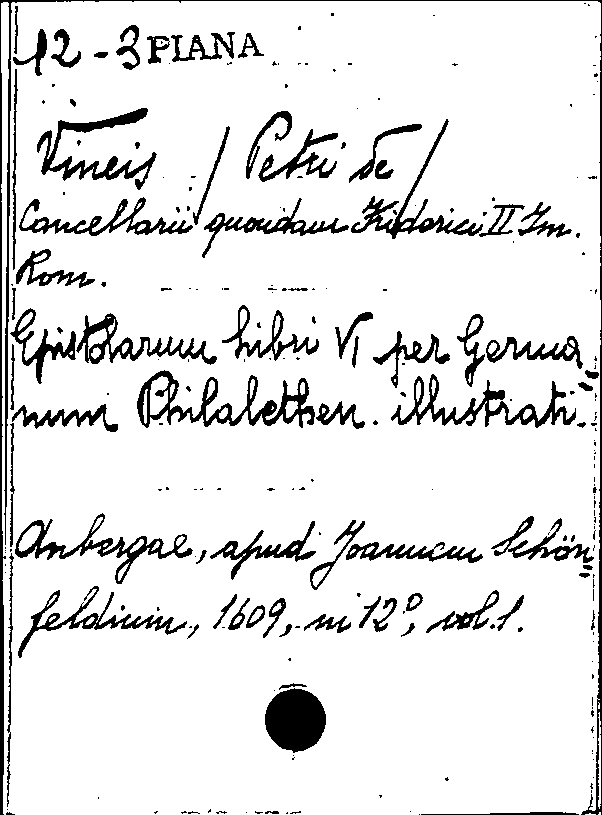 12-3 PIANA
Vineis / Petri de /
Cancellarii quondam Friderici II Im.
Rom.
Epistolarum libri VI per Germa
num Philalethen. illustrati.
Anbergae, apud Joannem Schön
feldium, 1609, in 12º, vol. 1.